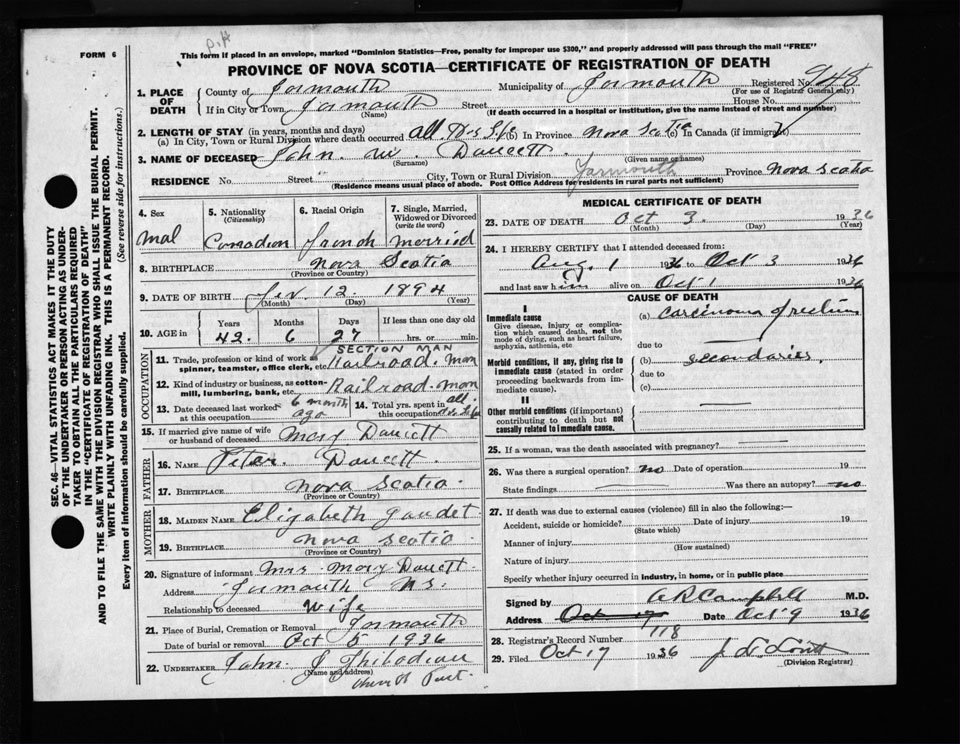 FORM 6
This form if placed in an envelope, marked "Dominion Statistics—Free, penalty for improper use $300," and properly addressed will pass through the mail "FREE"
PROVINCE OF NOVA SCOTIA—CERTIFICATE OF REGISTRATION OF DEATH
1. PLACE OF DEATH County of Yarmouth Municipality of Yarmouth Registered No. 948
(For use of Registrar General only)
If in City or Town Yarmouth Street House No.
(Name) (If death occurred in a hospital or institution, give the name instead of street and number)
2. LENGTH OF STAY (in years, months and days)
(a) In City, Town or Rural Division where death occurred all his life (b) In Province Nova Scotia (c) In Canada (if immigrant)
3. NAME OF DECEASED John. W. Doucett
(Surname) (Given name or names)
RESIDENCE No. Street City, Town or Rural Division Yarmouth Province Nova Scotia
(Residence means usual place of abode. Post Office Address for residents in rural parts not sufficient)
4. Sex Mal
5. Nationality (Citizenship) Canadian
6. Racial Origin French
7. Single, Married, Widowed or Divorced (write the word) Married
8. BIRTHPLACE Nova Scotia
(Province or Country)
9. DATE OF BIRTH 12. 1894
(Month) (Day) (Year)
10. AGE in Years Months Days If less than one day old
42. 6 27 hrs. or min.
OCCUPATION
SECTION MAN
11. Trade, profession or kind of work as spinner, teamster, office clerk, etc. Railroad. Man
12. Kind of industry or business, as cotton-mill, lumbering, bank, etc. Railroad. Man
13. Date deceased last worked at this occupation 6 month ago
14. Total yrs. spent in this occupation all.
15. If married give name of wife or husband of deceased Mary Doucett
FATHER
16. NAME Peter. Doucett
17. BIRTHPLACE Nova Scotia.
(Province or Country)
MOTHER
18. MAIDEN NAME Elizabeth Gaudet
19. BIRTHPLACE Nova Scotia
(Province or Country)
20. Signature of informant Mrs Mary Doucett
Address Yarmouth NS.
Relationship to deceased Wife
21. Place of Burial, Cremation or Removal Yarmouth
Date of burial or removal Oct 5 1936
22. UNDERTAKER John. J Thibodeau
(Name and address)
MEDICAL CERTIFICATE OF DEATH
23. DATE OF DEATH Oct 3. 1936
(Month) (Day) (Year)
24. I HEREBY CERTIFY that I attended deceased from:
Aug. 1 1936 to Oct 3 1936
and last saw him alive on Oct 1 1936
CAUSE OF DEATH
I
Immediate cause
Give disease, injury or complication which caused death, not the mode of dying, such as heart failure, asphyxia, asthenia, etc
(a) Carcinoma of rectum
due to
Morbid conditions, if any, giving rise to immediate cause (stated in order proceeding backwards from immediate cause).
(b) secondaries.
due to
(c)
II
Other morbid conditions (if important) contributing to death but not causally related to immediate cause.
25. If a woman, was the death associated with pregnancy?
26. Was there a surgical operation? no Date of operation 19
State findings Was there an autopsy? no
27. If death was due to external causes (violence) fill in also the following:—
Accident, suicide or homicide? Date of injury 19
(State which)
Manner of injury
(How sustained)
Nature of injury
Specify whether injury occurred in industry, in home, or in public place
Signed by A R Campbell M.D.
Address Oct 17 Date Oct 9 1936
28. Registrar's Record Number 118
29. Filed Oct 17 1936
(Division Registrar)
SEC. 46—VITAL STATISTICS ACT MAKES IT THE DUTY
OF THE UNDERTAKER OR PERSON ACTING AS UNDER-
TAKER TO OBTAIN ALL THE PARTICULARS REQUIRED
IN THE "CERTIFICATE OF REGISTRATION OF DEATH"
AND TO FILE THE SAME WITH THE DIVISION REGISTRAR WHO SHALL ISSUE THE BURIAL PERMIT.
WRITE PLAINLY WITH UNFADING INK. THIS IS A PERMANENT RECORD.
Every item of information should be carefully supplied. (See reverse side for instructions.)